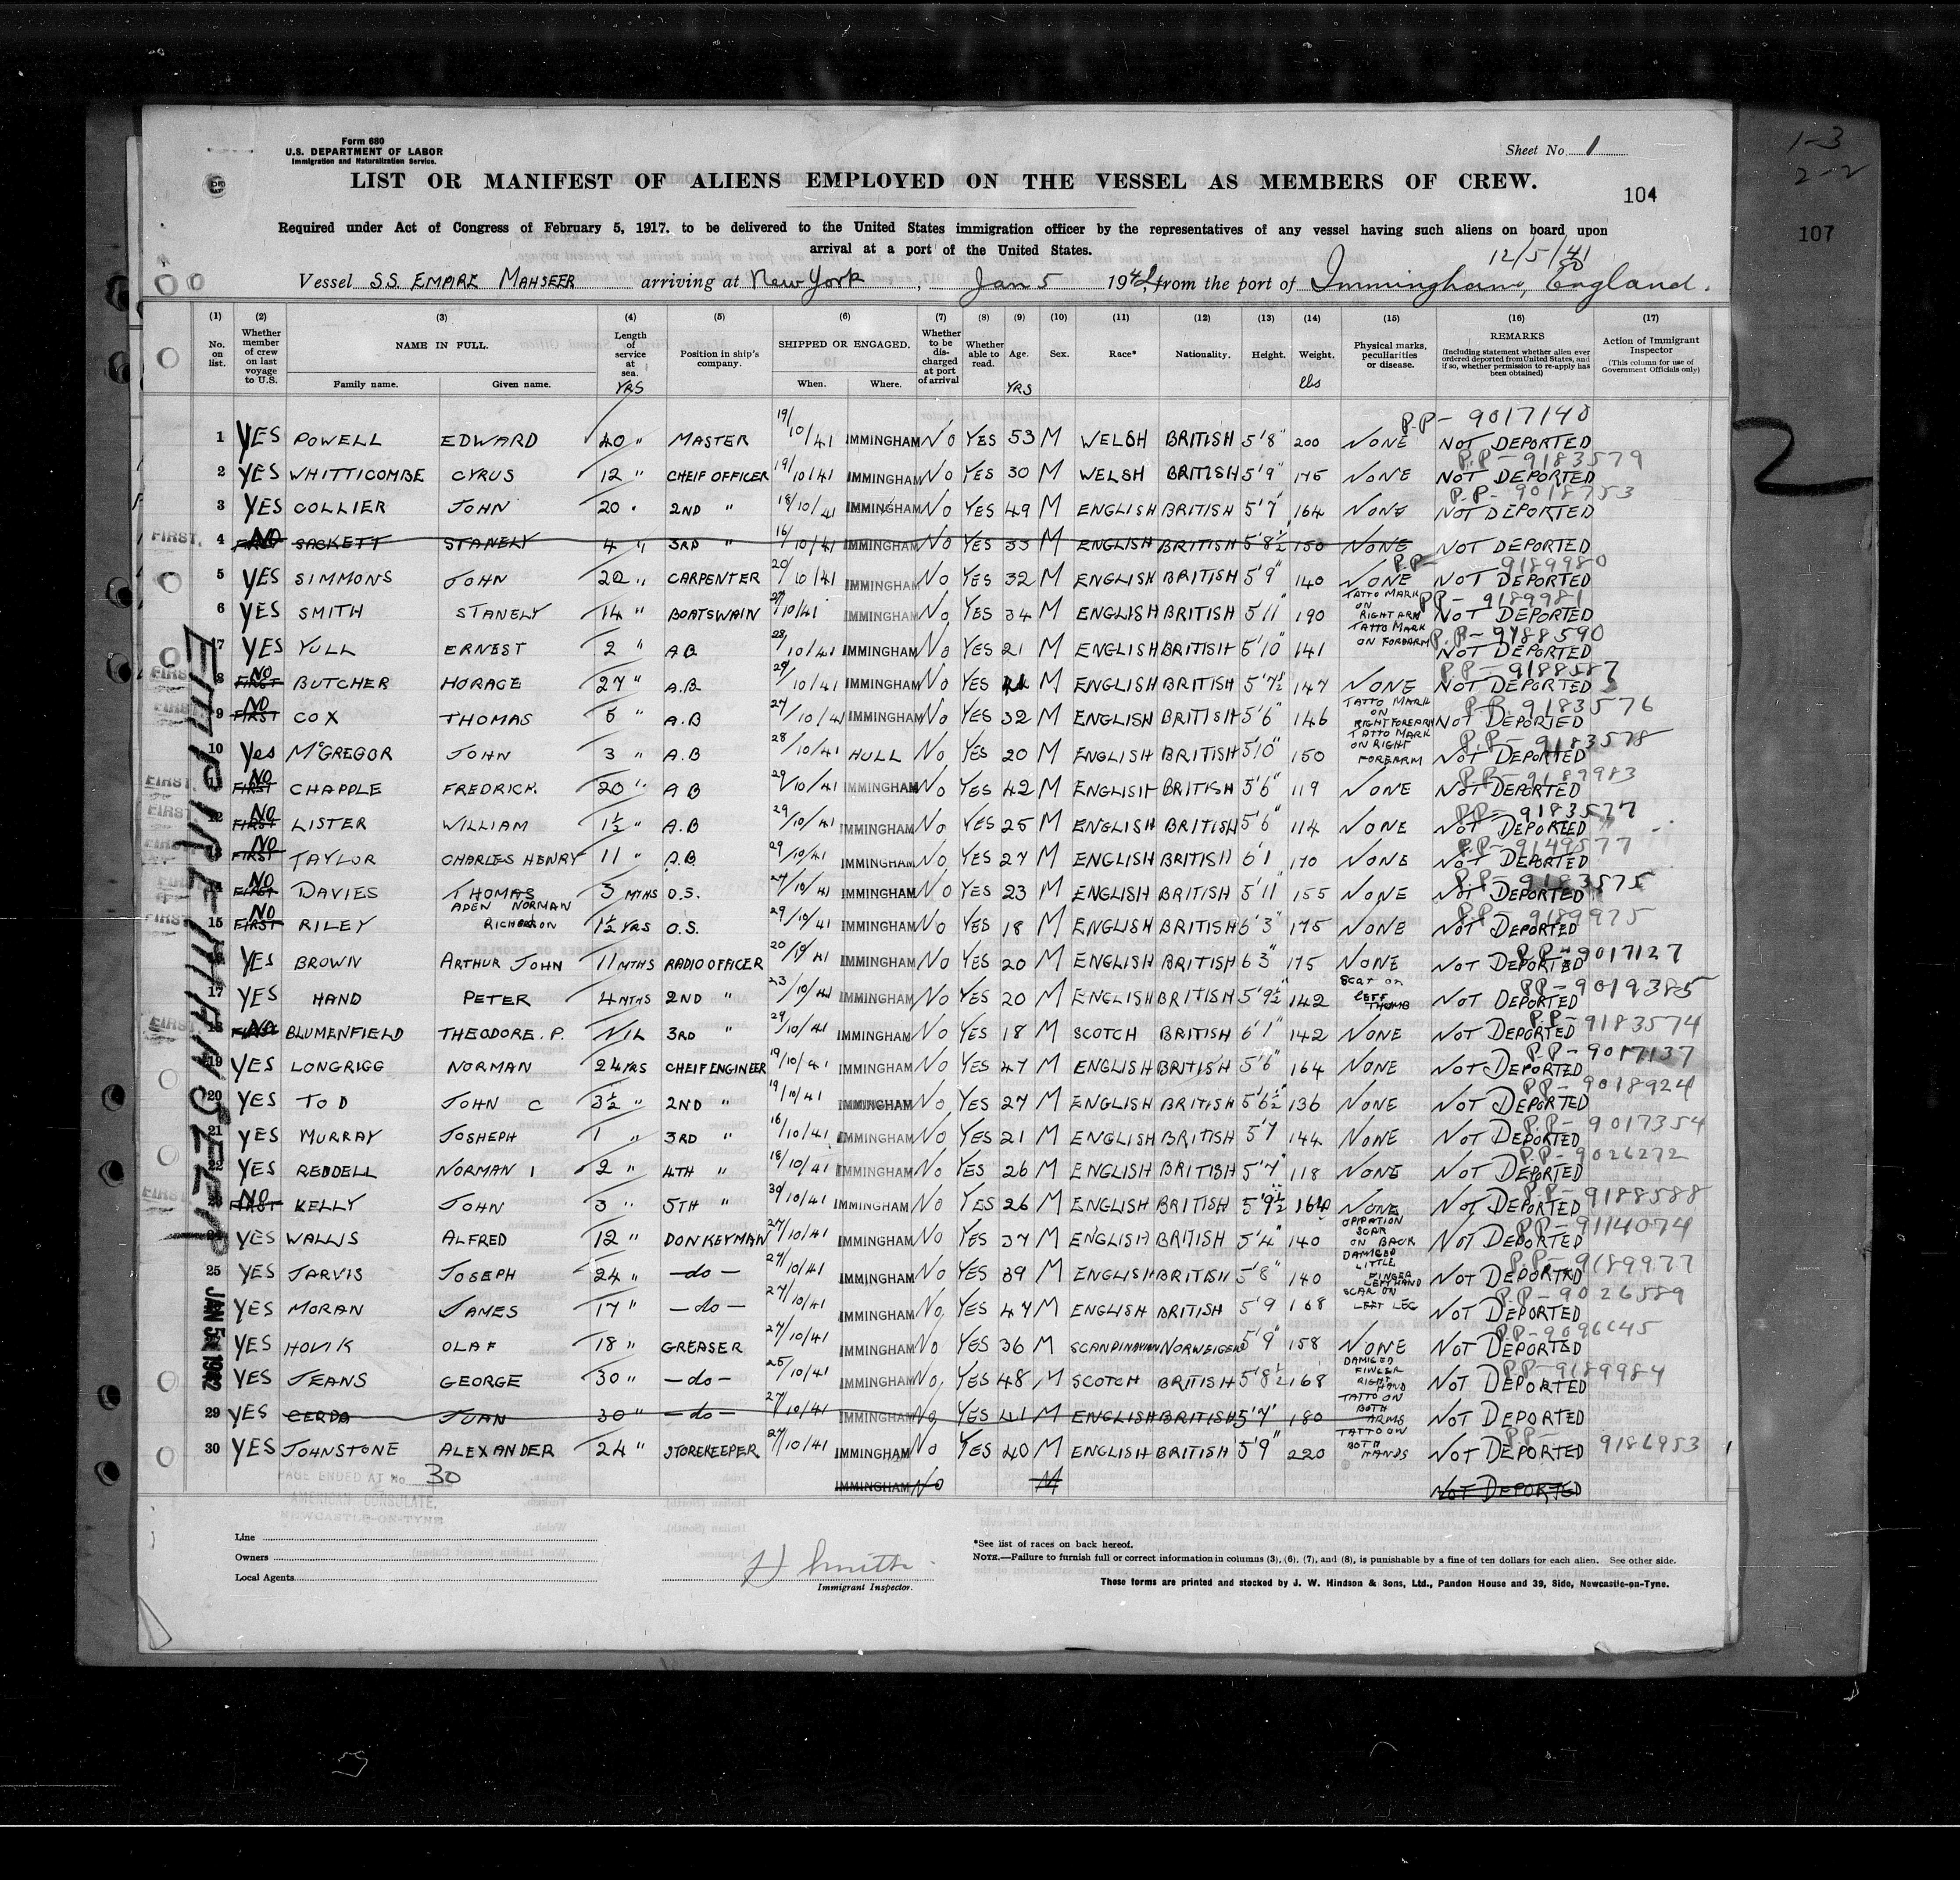 Form 680
U.S. DEPARTMENT OF LABOR
Immigration and Naturalization Service.
Sheet No. 1
1-3
2-2
LIST OR MANIFEST OF ALIENS EMPLOYED ON THE VESSEL AS MEMBERS OF CREW.
104
107
Required under Act of Congress of February 5, 1917, to be delivered to the United States immigration officer by the representatives of any vessel having such aliens on board upon
arrival at a port of the United States.
12/5/41
Vessel S.S. EMPIRE MAHSEER arriving at New York, Jan 5 1942, from the port of Immingham, England.
(1) (2) (3) (4) (5) (6) (7) (8) (9) (10) (11) (12) (13) (14) (15) (16) (17)
No. on list. Whether member of crew on last voyage to U.S. NAME IN FULL. Family name. Given name. Length of service at sea. YRS Position in ship's company. SHIPPED OR ENGAGED. When. Where. Whether to be discharged at port of arrival Whether able to read. Age. YRS Sex. Race* Nationality. Height. Weight. lbs Physical marks, peculiarities or disease. REMARKS (Including statement whether alien ever ordered deported from United States, and if so, whether permission to re-apply has been obtained) Action of Immigrant Inspector (This column for use of Government Officials only)
2
1 YES POWELL EDWARD 40 " MASTER 19/10/41 IMMINGHAM NO YES 53 M WELSH BRITISH 5'8" 200 NONE NOT DEPORTED P.P- 9017140
2 YES WHITTICOMBE CYRUS 12 " CHEIF OFFICER 19/10/41 IMMINGHAM NO YES 30 M WELSH BRITISH 5'9" 175 NONE NOT DEPORTED P.P- 9183579
3 YES COLLIER JOHN 20 " 2ND " 18/10/41 IMMINGHAM NO YES 49 M ENGLISH BRITISH 5'7" 164 NONE NOT DEPORTED P.P- 9018753
FIRST. 4 FIRST NO SACKETT STANELY 4 " 3RD " 16/10/41 IMMINGHAM NO YES 33 M ENGLISH BRITISH 5'8½ 150 NONE NOT DEPORTED
5 YES SIMMONS JOHN 20 " CARPENTER 20/10/41 IMMINGHAM NO YES 32 M ENGLISH BRITISH 5'9" 140 NONE NOT DEPORTED P.P- 9189980
6 YES SMITH STANELY 14 " BOATSWAIN 27/10/41 IMMINGHAM NO YES 34 M ENGLISH BRITISH 5'11" 190 TATTO MARK ON RIGHT ARM NOT DEPORTED PP- 9189981
7 YES YULL ERNEST 2 " A.B 28/10/41 IMMINGHAM NO YES 21 M ENGLISH BRITISH 5'10" 141 TATTO MARK ON FOREARM NOT DEPORTED P.P- 9188590
FIRST 8 FIRST NO BUTCHER HORACE 27 " A.B. 29/10/41 IMMINGHAM NO YES M ENGLISH BRITISH 5'7½" 147 NONE NOT DEPORTED P.P- 9188587
FIRST 9 FIRST NO COX THOMAS 6 " A.B 27/10/41 IMMINGHAM NO YES 32 M ENGLISH BRITISH 5'6" 146 TATTO MARK ON RIGHT FOREARM NOT DEPORTED P.P- 9183576
10 Yes McGREGOR JOHN 3 " A.B 28/10/41 HULL NO YES 20 M ENGLISH BRITISH 5'10" 150 TATTO MARK ON RIGHT FOREARM NOT DEPORTED P.P- 9183578
FIRST 11 FIRST NO CHAPPLE FREDRICK. 20 " A B 29/10/41 IMMINGHAM NO YES 42 M ENGLISH BRITISH 5'6" 119 NONE NOT DEPORTED P.P- 9189983
FIRST 12 FIRST NO LISTER WILLIAM 1½ " A.B 29/10/41 IMMINGHAM NO YES 25 M ENGLISH BRITISH 5'6" 114 NONE NOT DEPORTED PP- 9183577
FIRST 13 FIRST NO TAYLOR CHARLES HENRY 11 " A.B. 29/10/41 IMMINGHAM NO YES 27 M ENGLISH BRITISH 6'1 170 NONE NOT DEPORTED P.P- 9149577
FIRST 14 FIRST NO DAVIES THOMAS 3 MTHS O.S. 27/10/41 IMMINGHAM NO YES 23 M ENGLISH BRITISH 5'11" 155 NONE NOT DEPORTED P.P- 9183575
FIRST 15 FIRST NO RILEY ADEN NORMAN 1½ YRS O.S. 29/10/41 IMMINGHAM NO YES 18 M ENGLISH BRITISH 6'3" 175 NONE NOT DEPORTED PP 9189975
16 YES BROWN ARTHUR JOHN 11 MTHS RADIO OFFICER 20/10/41 IMMINGHAM NO YES 20 M ENGLISH BRITISH 6'3" 175 NONE NOT DEPORTED P.P- 9017127
17 YES HAND PETER 4 MTHS 2ND " 23/10/41 IMMINGHAM NO YES 20 M ENGLISH BRITISH 5'9½" 142 SCAR on LEFT THUMB NOT DEPORTED PP- 9019385
FIRST 18 FIRST NO BLUMENFIELD THEODORE. P. NIL 3RD " 29/10/41 IMMINGHAM NO YES 18 M SCOTCH BRITISH 6'1" 142 NONE NOT DEPORTED P.P- 9183574
19 YES LONGRIGG NORMAN 24 YRS CHEIF ENGINEER 19/10/41 IMMINGHAM NO YES 47 M ENGLISH BRITISH 5'6" 164 NONE NOT DEPORTED P.P- 9017137
20 YES TOD JOHN C 3½ " 2ND " 19/10/41 IMMINGHAM NO YES 27 M ENGLISH BRITISH 5'6½" 136 NONE NOT DEPORTED P.P- 9018924
21 YES MURRAY JOSHEPH 1 " 3RD " 16/10/41 IMMINGHAM NO YES 21 M ENGLISH BRITISH 5'7 144 NONE NOT DEPORTED P.P- 9017354
22 YES REDDELL NORMAN I 2 " 4TH " 18/10/41 IMMINGHAM NO YES 26 M ENGLISH BRITISH 5'7" 118 NONE NOT DEPORTED P.P- 9026272
FIRST 23 FIRST NO KELLY JOHN 3 " 5TH " 30/10/41 IMMINGHAM NO YES 26 M ENGLISH BRITISH 5'9½" 164 NONE NOT DEPORTED P.P- 9188588
24 YES WALLIS ALFRED 12 " DONKEYMAN 27/10/41 IMMINGHAM NO YES 37 M ENGLISH BRITISH 5'4" 140 OPIRATION SCAR ON BACK NOT DEPORTED P.P- 9114074
25 YES JARVIS JOSEPH 24 " -do- 27/10/41 IMMINGHAM NO YES 39 M ENGLISH BRITISH 5'8" 140 DAMIGED LITTLE FINGER LEFT HAND NOT DEPORTED P.P- 9189977
YES MORAN JAMES 17 " -do- 27/10/41 IMMINGHAM NO YES 47 M ENGLISH BRITISH 5'9 168 SCAR ON LEFT LEG NOT DEPORTED P.P- 9026589
YES HOVIK OLAF 18 " GREASER 27/10/41 IMMINGHAM NO YES 36 M SCANDINAVIAN NORWEIGEN 5'9" 158 NONE NOT DEPORTED P.P- 9096645
YES JEANS GEORGE 30 " -do- 25/10/41 IMMINGHAM NO YES 48 M SCOTCH BRITISH 5'8½ 168 DAMIGED FINGER RIGHT HAND NOT DEPORTED PP- 9189984
29 YES CERDA JUAN 30 " -do- 27/10/41 IMMINGHAM NO YES 41 M ENGLISH BRITISH 5'7" 180 TATTO ON BOTH ARMS NOT DEPORTED
30 YES JOHNSTONE ALEXANDER 24 " STOREKEEPER 27/10/41 IMMINGHAM NO YES 40 M ENGLISH BRITISH 5'9" 220 TATTO ON BOTH HANDS NOT DEPORTED P.P- 9186953
IMMINGHAM NO M NOT DEPORTED
EMPIRE MAHSEER
JAN 5 1942
PAGE ENDED AT No 30
AMERICAN CONSULATE,
NEWCASTLE-ON-TYNE
Line
Owners
Local Agents
H Smith
Immigrant Inspector.
*See list of races on back hereof.
NOTE.—Failure to furnish full or correct information in columns (3), (6), (7), and (8), is punishable by a fine of ten dollars for each alien. See other side.
These forms are printed and stocked by J. W. Hindson & Sons, Ltd., Pandon House and 39, Side, Newcastle-on-Tyne.